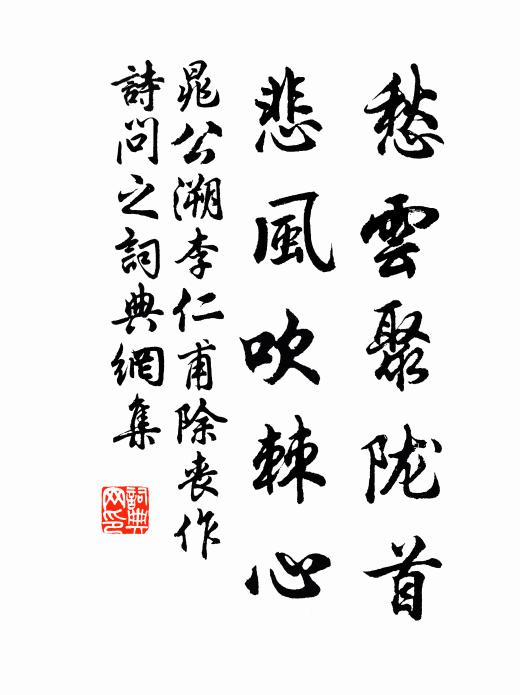 愁雲聚陇首
悲風吹棘心
晁公溯李仁甫除丧作
詩問之詞典網集
詞典网印